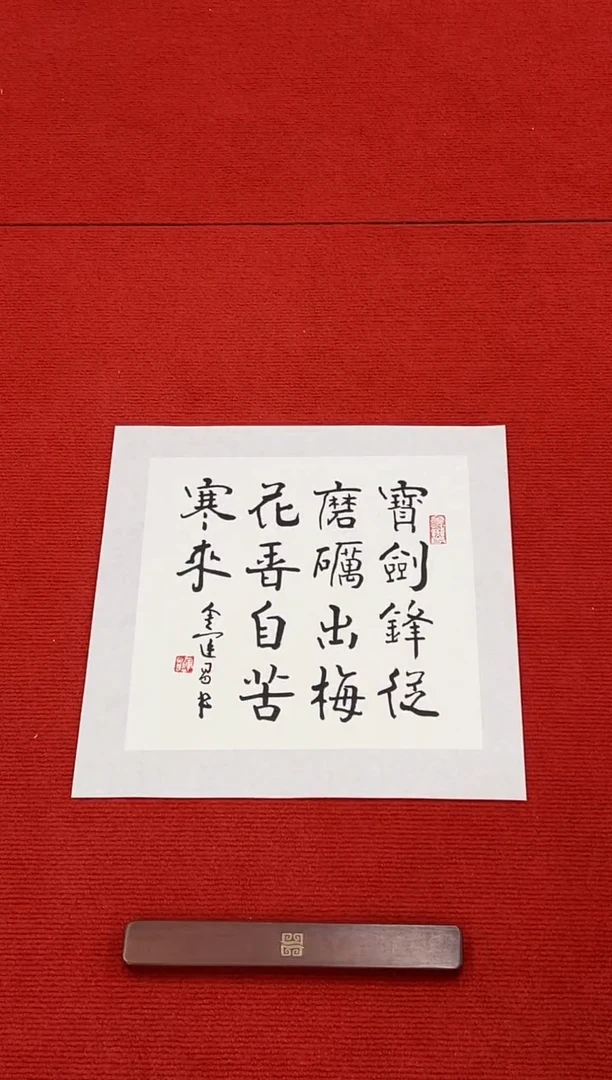 寶劍鋒從
磨礪出梅
花香自苦
寒來
金運昌書